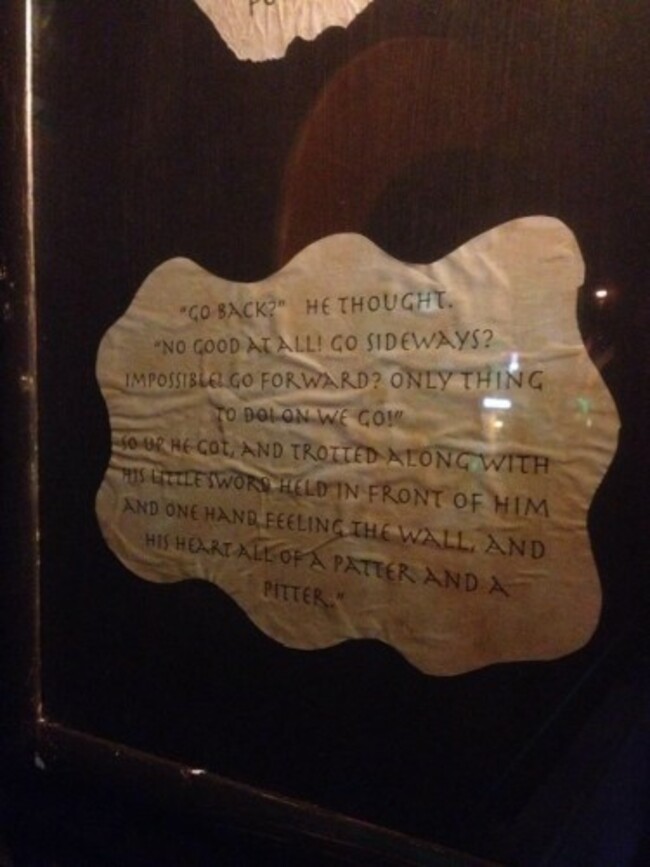 "GO BACK?" HE THOUGHT.
"NO GOOD AT ALL! GO SIDEWAYS?
IMPOSSIBLE! GO FORWARD? ONLY THING
TO DO! ON WE GO!"
SO UP HE GOT, AND TROTTED ALONG WITH
HIS LITTLE SWORD HELD IN FRONT OF HIM
AND ONE HAND FEELING THE WALL, AND
HIS HEART ALL OF A PATTER AND A
PITTER."